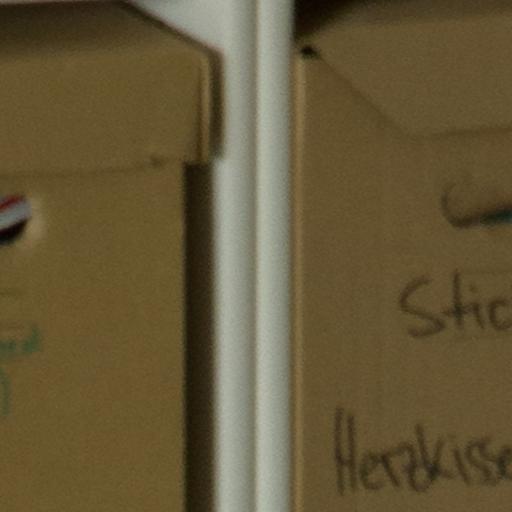 Stic
Herzkisse